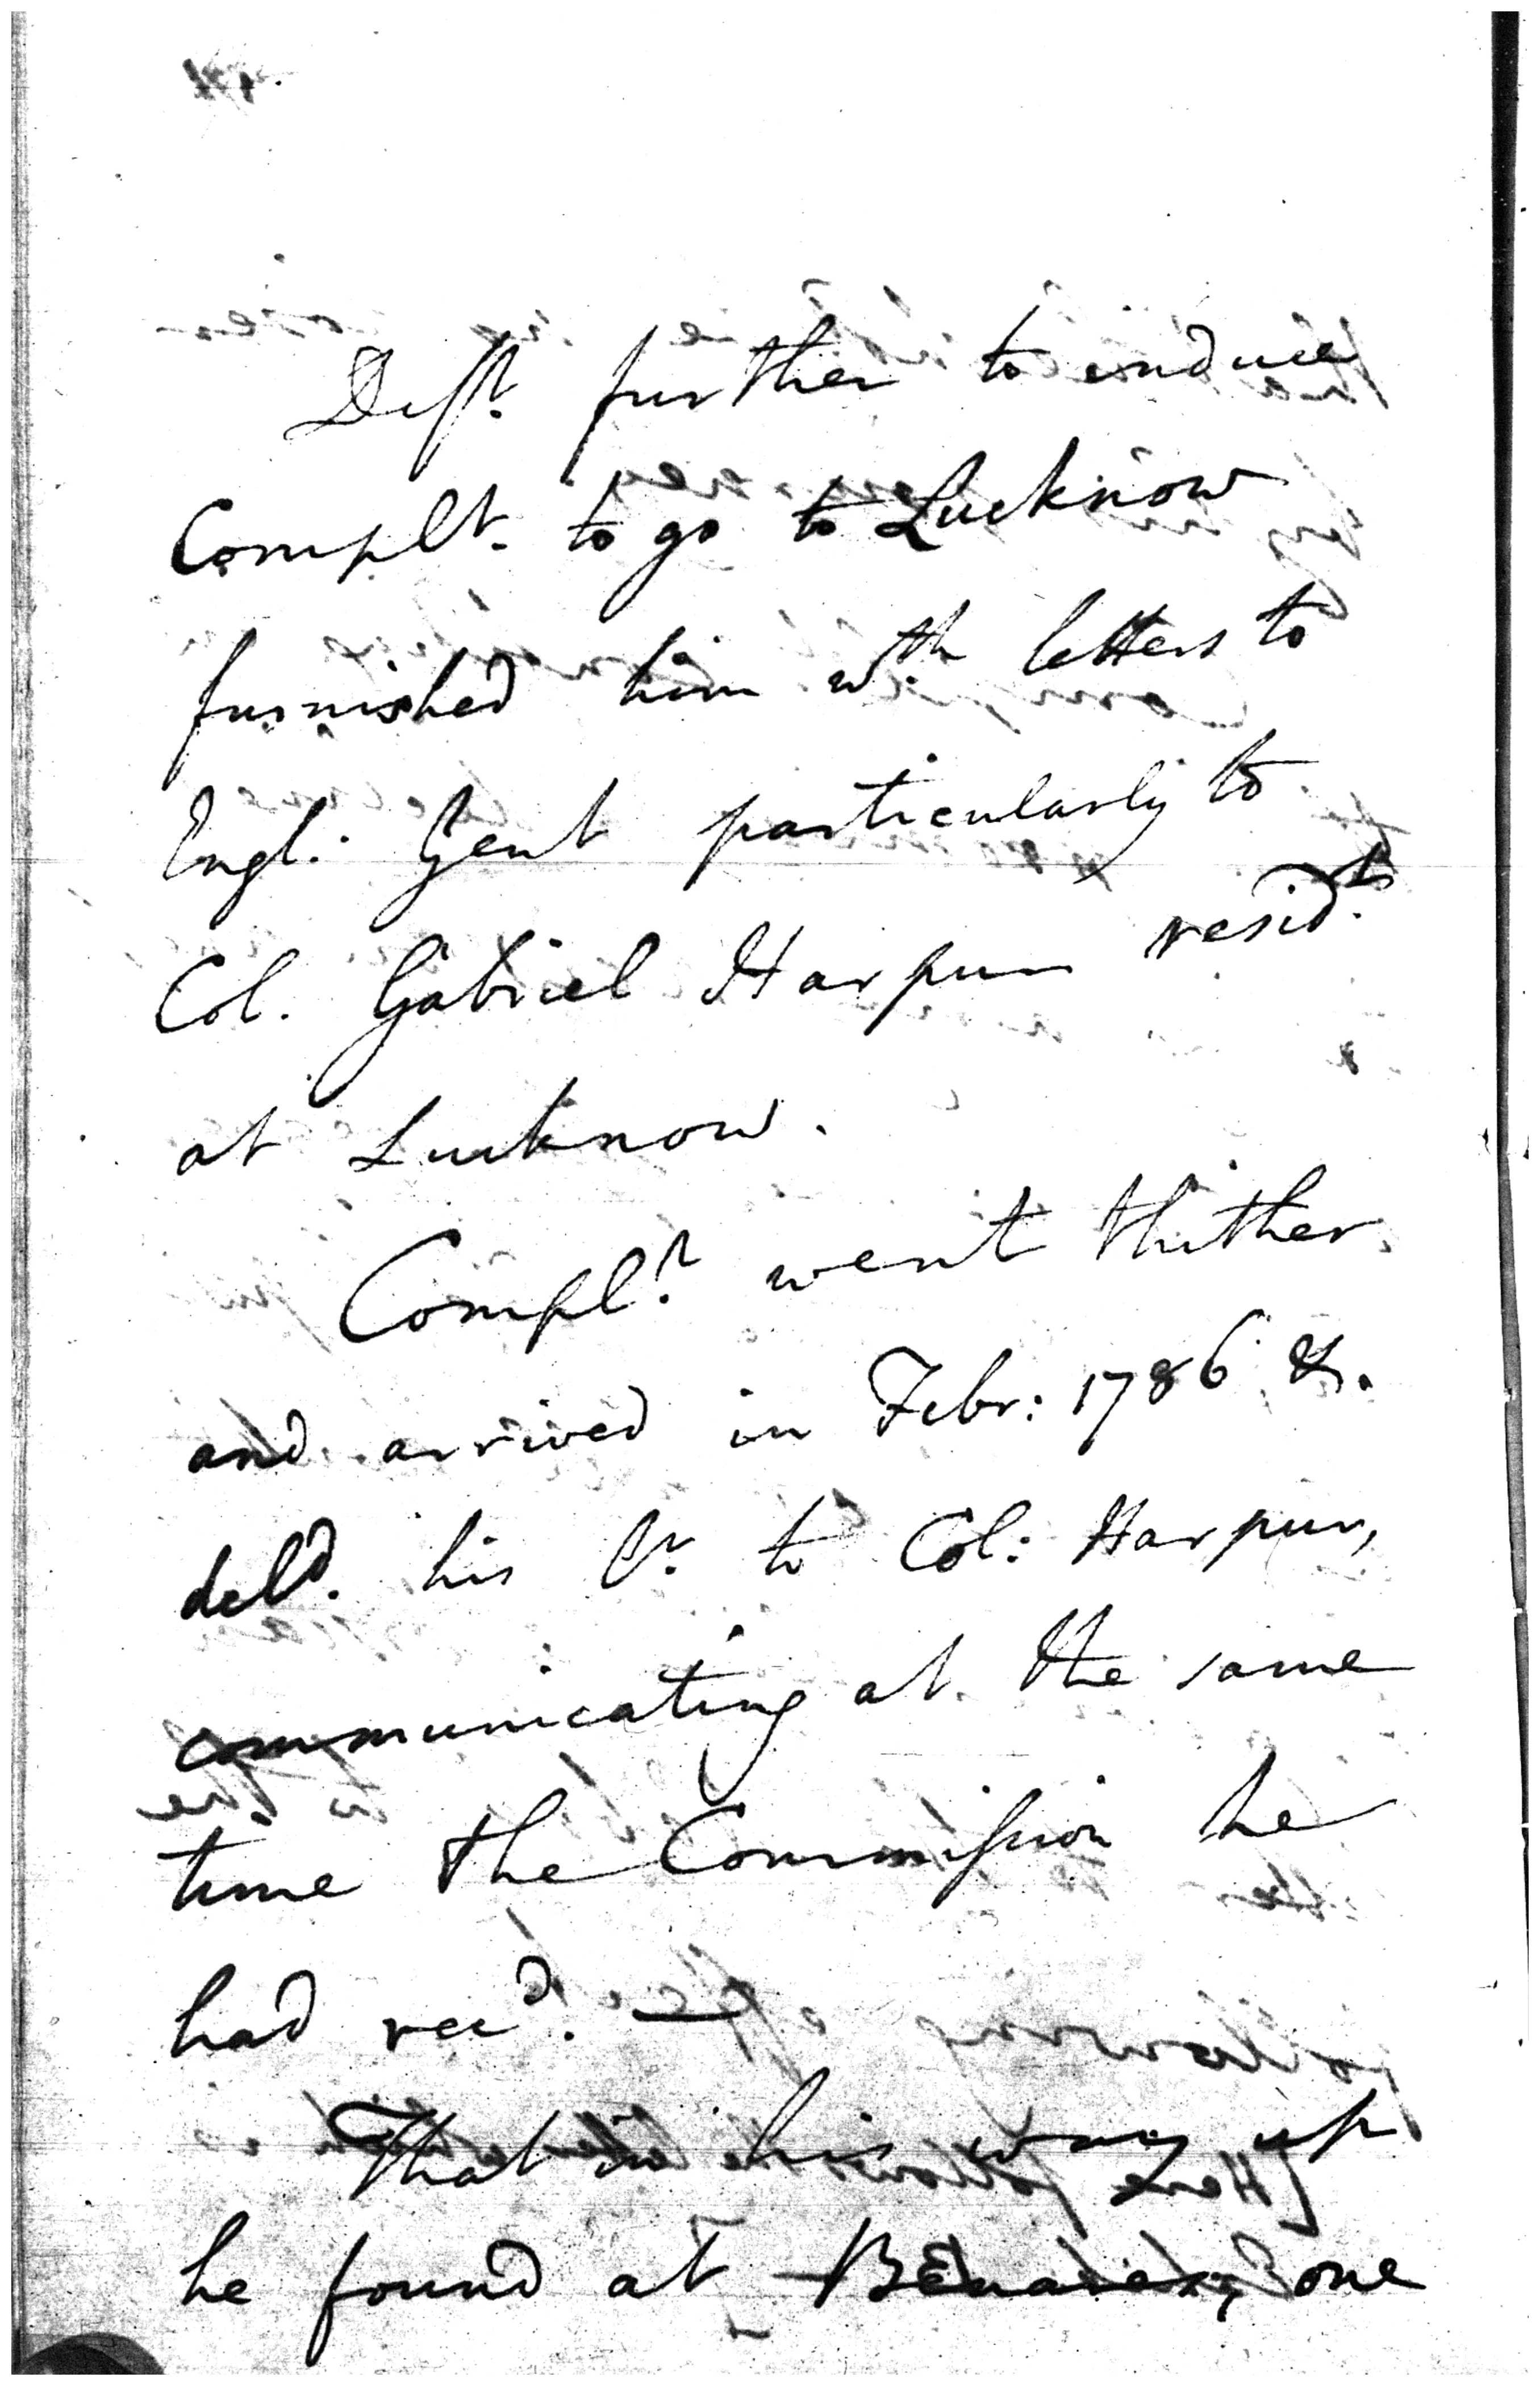 Deft. further to induce
Complt. to go to Lucknow
furnished him wth. letters to
Engl: Gent particularly to
Col. Gabriel Harpur residt.
at Lucknow.
Complt. went thither
and arrived in Febr: 1786 &.
deld. his lr. to Col: Harpur,
communicating at the same
time the Commission he
had recd. —
That in his way up
he found at Benares, one